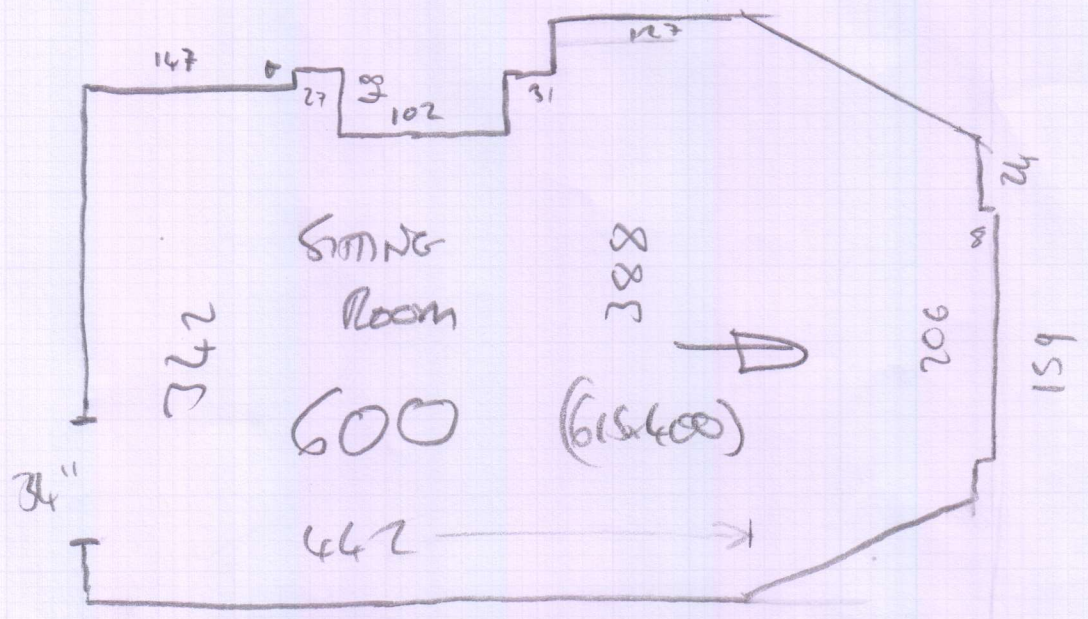 147
27
102
31
127
24
8
SITTING
Room
388
342
206
159
600
(615x400)
34"
442